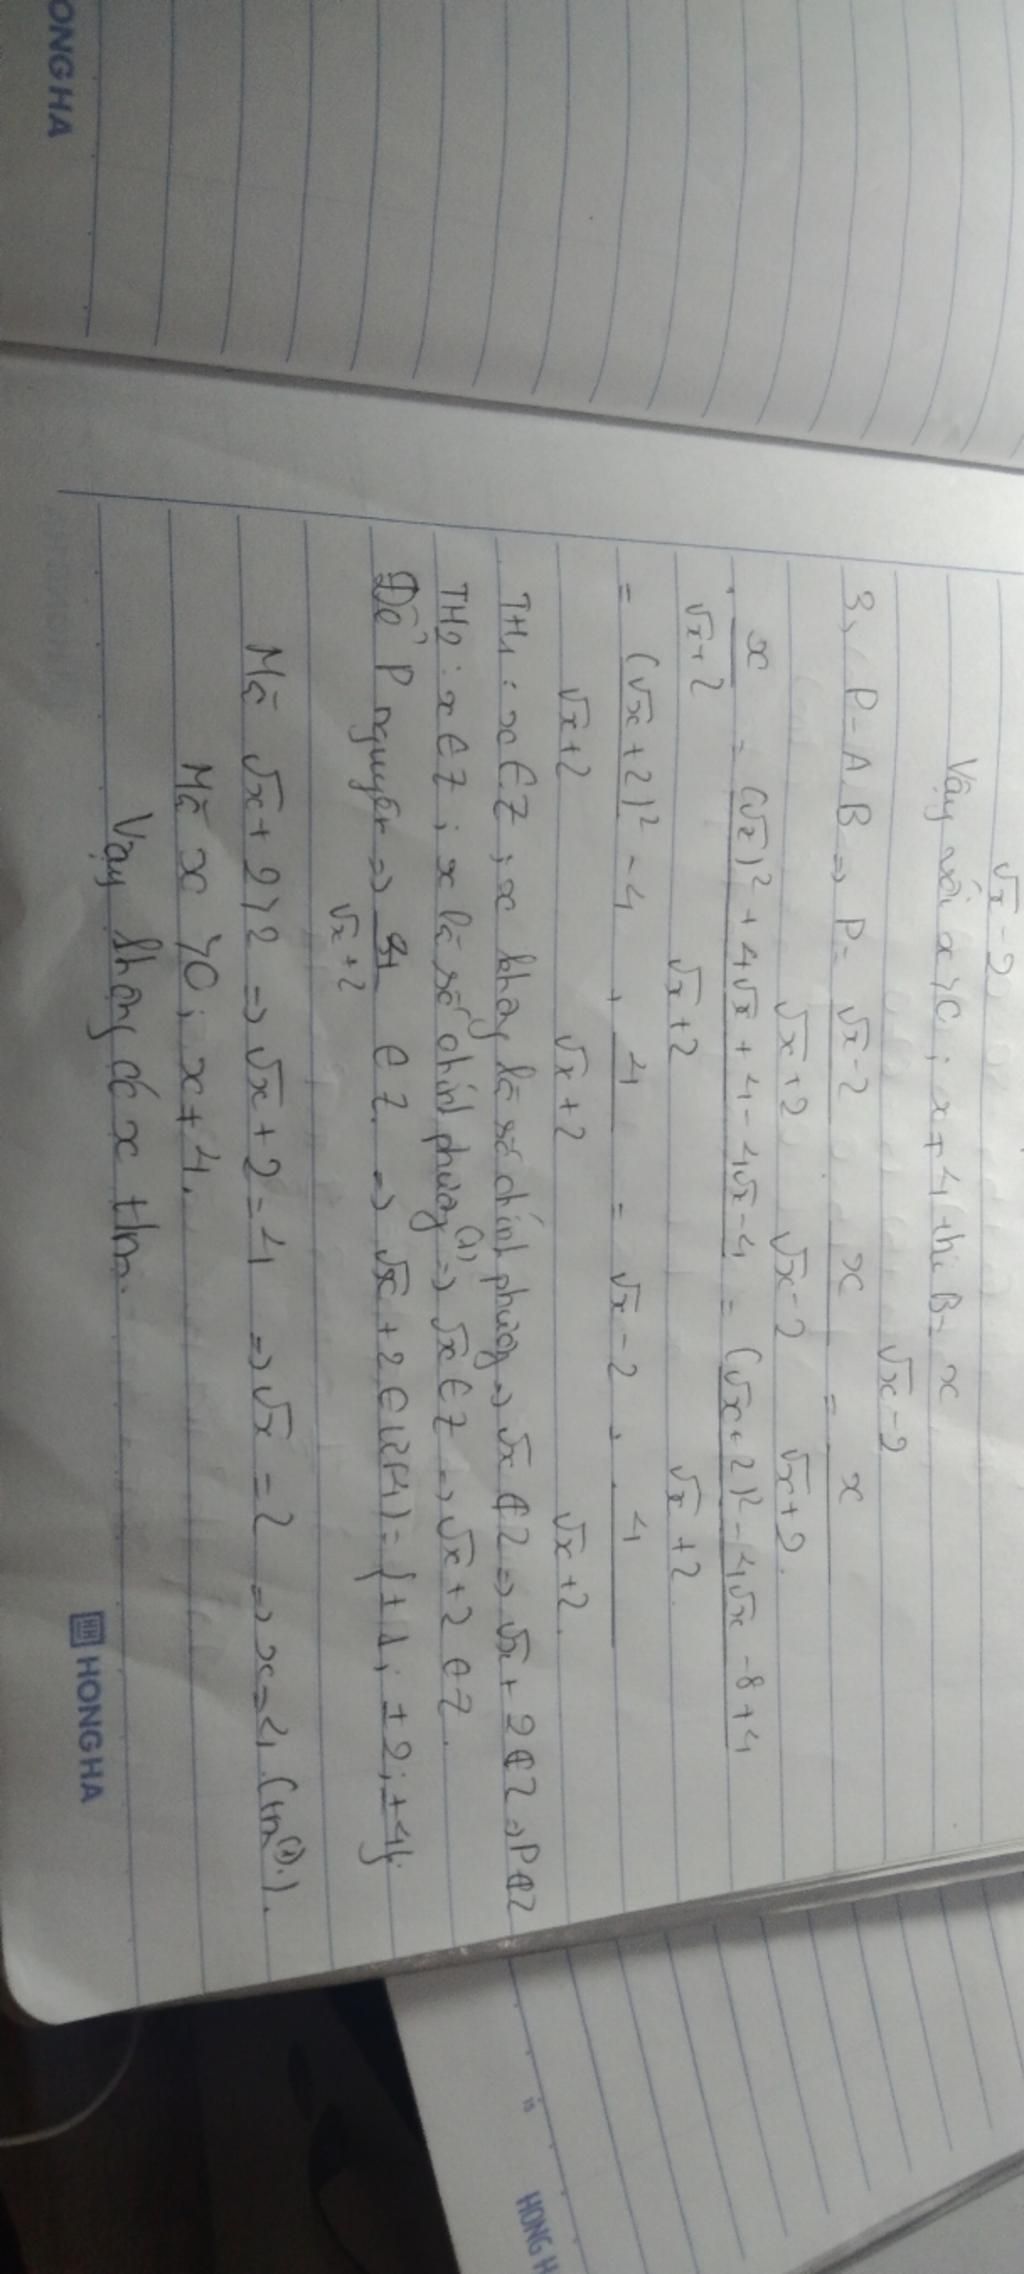 √x - 2
Vậy với x > 0 ; x ≠ 4 thì B = x
√x - 2
3, P = A. B => P = √x - 2 x = x
√x + 2 √x - 2 √x + 2
x = (√x)² + 4√x + 4 - 4√x - 4 = (√x + 2)² - 4√x - 8 + 4
√x + 2 √x + 2 √x + 2
= (√x + 2)² - 4 + 4 = √x - 2 + 4
√x + 2 √x + 2 √x + 2
TH1 : x ∈ Z ; x không là số chính phương => √x ∉ Z => √x + 2 ∉ Z => P ∉ Z
TH2 : x ∈ Z ; x là số chính phương (1) => √x ∈ Z => √x + 2 ∈ Z
Để P nguyên => 4 ∈ Z => √x + 2 ∈ Ư(4) = { ± 1 ; ± 2 ; ± 4 }
√x + 2
Mà √x + 2 > 2 => √x + 2 = 4 => √x = 2 => x = 4 (tm (1) ).
Mà x > 0 ; x ≠ 4.
Vậy không có x tm.
HONG HA
ONG HA
HONG H